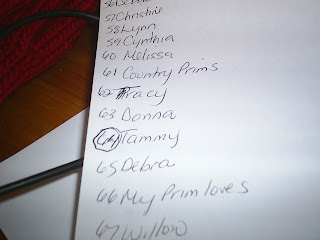 57 Christine
58 Lynn
59 Cynthia
60 Melissa
61 Country Prims
62 Tracy
63 Donna
64 Tammy
65 Debra
66 My Prim loves
67 Willow